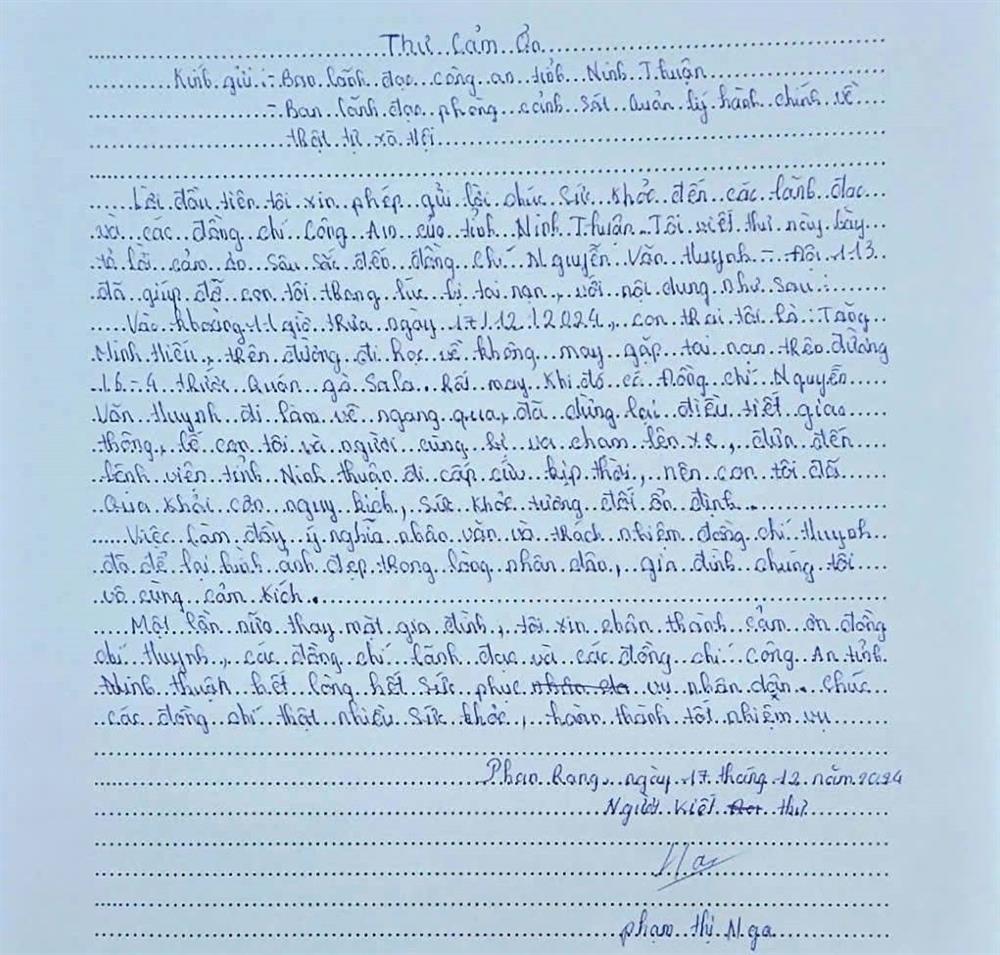 Thư Cảm Ơn
Kính gửi :- Ban lãnh đạo công an tỉnh Ninh Thuận
- Ban lãnh đạo phòng cảnh sát quản lý hành chính về
thật tự xã hội
Lời đầu tiên tôi xin phép gửi lời chúc sức khỏe đến các lãnh đạo
và các đồng chí Công An của tỉnh Ninh Thuận. Tôi viết thư này bày
tỏ lời cảm ơn sâu sắc đến đồng chí Nguyễn Văn Huynh - Đội 113
đã giúp đỡ con tôi trong lúc bị tai nạn, với nội dung như sau :
Vào khoảng 11 giờ trưa ngày 17/12/2024, con trai tôi là : Trăng
Minh Hiếu, trên đường đi học về không may gặp tai nạn trên đường
16-4 trước quán gà Sala. Rất may, khi đó có đồng chí Nguyễn
Văn Huynh đi làm về ngang qua, đã dừng lại điều tiết giao
thông, bế con tôi và người cùng bị va chạm lên xe, đưa đến
bệnh viện tỉnh Ninh Thuận đi cấp cứu kịp thời, nên con tôi đã
qua khỏi cơn nguy kịch, sức khỏe tương đối ổn định.
Việc làm đầy ý nghĩa nhân văn và trách nhiệm đồng chí Huynh
đã để lại hình ảnh đẹp trong lòng nhân dân, gia đình chúng tôi
vô cùng cảm kích.
Một lần nữa thay mặt gia đình, tôi xin chân thành cảm ơn đồng
chí Huynh, các đồng chí lãnh đạo và các đồng chí Công An tỉnh
Ninh Thuận hết lòng hết sức phục vụ nhân dân. Chúc
các đồng chí thật nhiều sức khỏe, hoàn thành tốt nhiệm vụ
Phan Rang, ngày 17 tháng 12 năm 2024
Người viết thư
Nga
Phạm Thị Nga